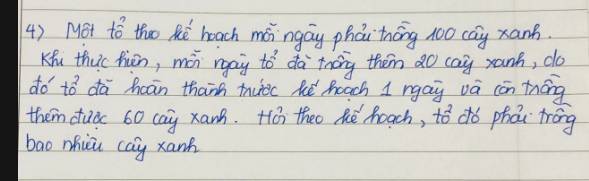 4) Một tổ theo kế hoạch mỗi ngày phải trồng 100 cây xanh.
Khi thực hiện, mỗi ngày tổ đã trồng thêm 20 cây xanh, do
đó tổ đã hoàn thành trước kế hoạch 1 ngày và còn trồng
thêm được 60 cây xanh. Hỏi theo kế hoạch, tổ đó phải trồng
bao nhiêu cây xanh